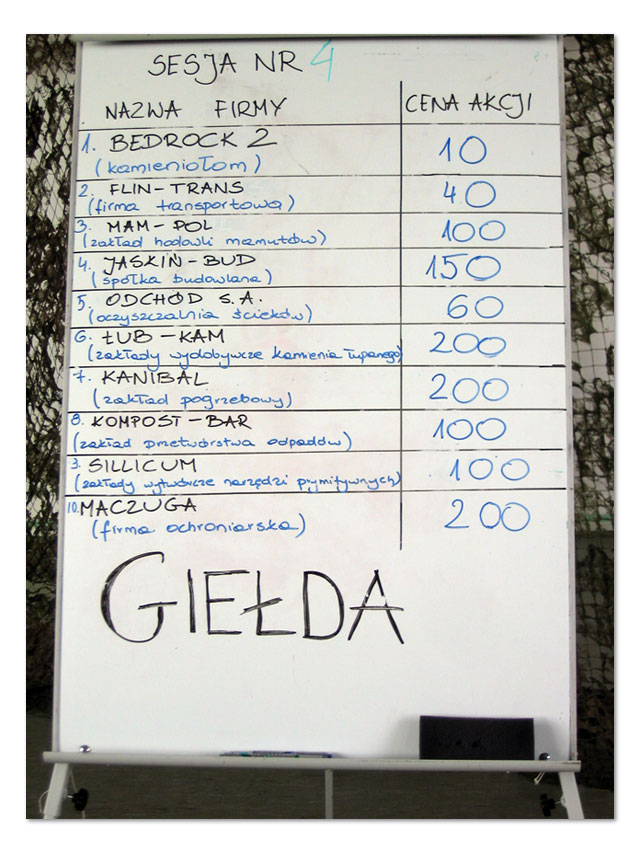 SESJA NR 4
NAZWA FIRMY CENA AKCJI
1. BEDROCK 2 10
(kamieniołom)
2. FLIN-TRANS 40
(firma transportowa)
3. MAM-POL 100
(zakład hodowli mamutów)
4. JASKIN-BUD 150
(spółka budowlana)
5. ODCHÓD S.A. 60
(oczyszczalnia ścieków)
6. ŁUB-KAM 200
(zakłady wydobywcze kamienia łupanego)
7. KANIBAL 200
(zakład pogrzebowy)
8. KOMPOST-BAR 100
(zakład przetwórstwa odpadów)
9. SILLICUM 100
(zakłady wytwórcze narzędzi prymitywnych)
10. MACZUGA 200
(firma ochroniarska)
GIEŁDA